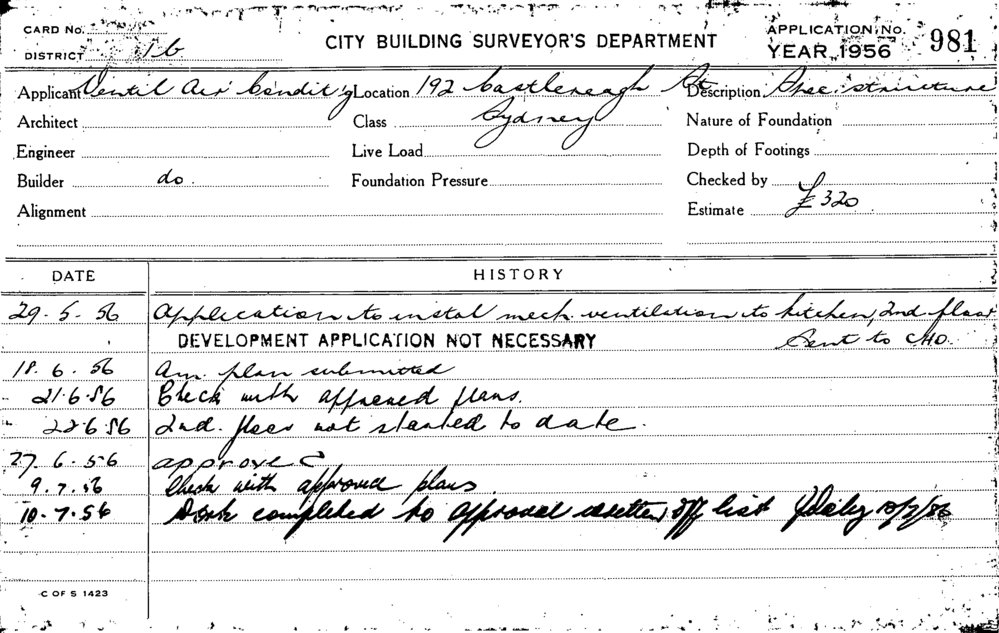 CARD No.
DISTRICT 1b
CITY BUILDING SURVEYOR'S DEPARTMENT
APPLICATION No. 981
YEAR 1956
Applicant Ventil Air Condit'g Location 192 Castlereagh St Description
Architect Class Sydney Nature of Foundation
Engineer Live Load Depth of Footings
Builder do. Foundation Pressure Checked by
Alignment Estimate £320
DATE HISTORY
29.5.56 Application to instal mech ventilation to kitchen, 2nd floor
DEVELOPMENT APPLICATION NOT NECESSARY Sent to CHO.
18.6.56 Am. plan submitted
21.6.56 Check with approved plans.
22.6.56 2nd. floor not started to date.
27.6.56 approved
9.7.56 Check with approved plans
10.7.56 Work completed to approval off list 10/7/56
C OF S 1423